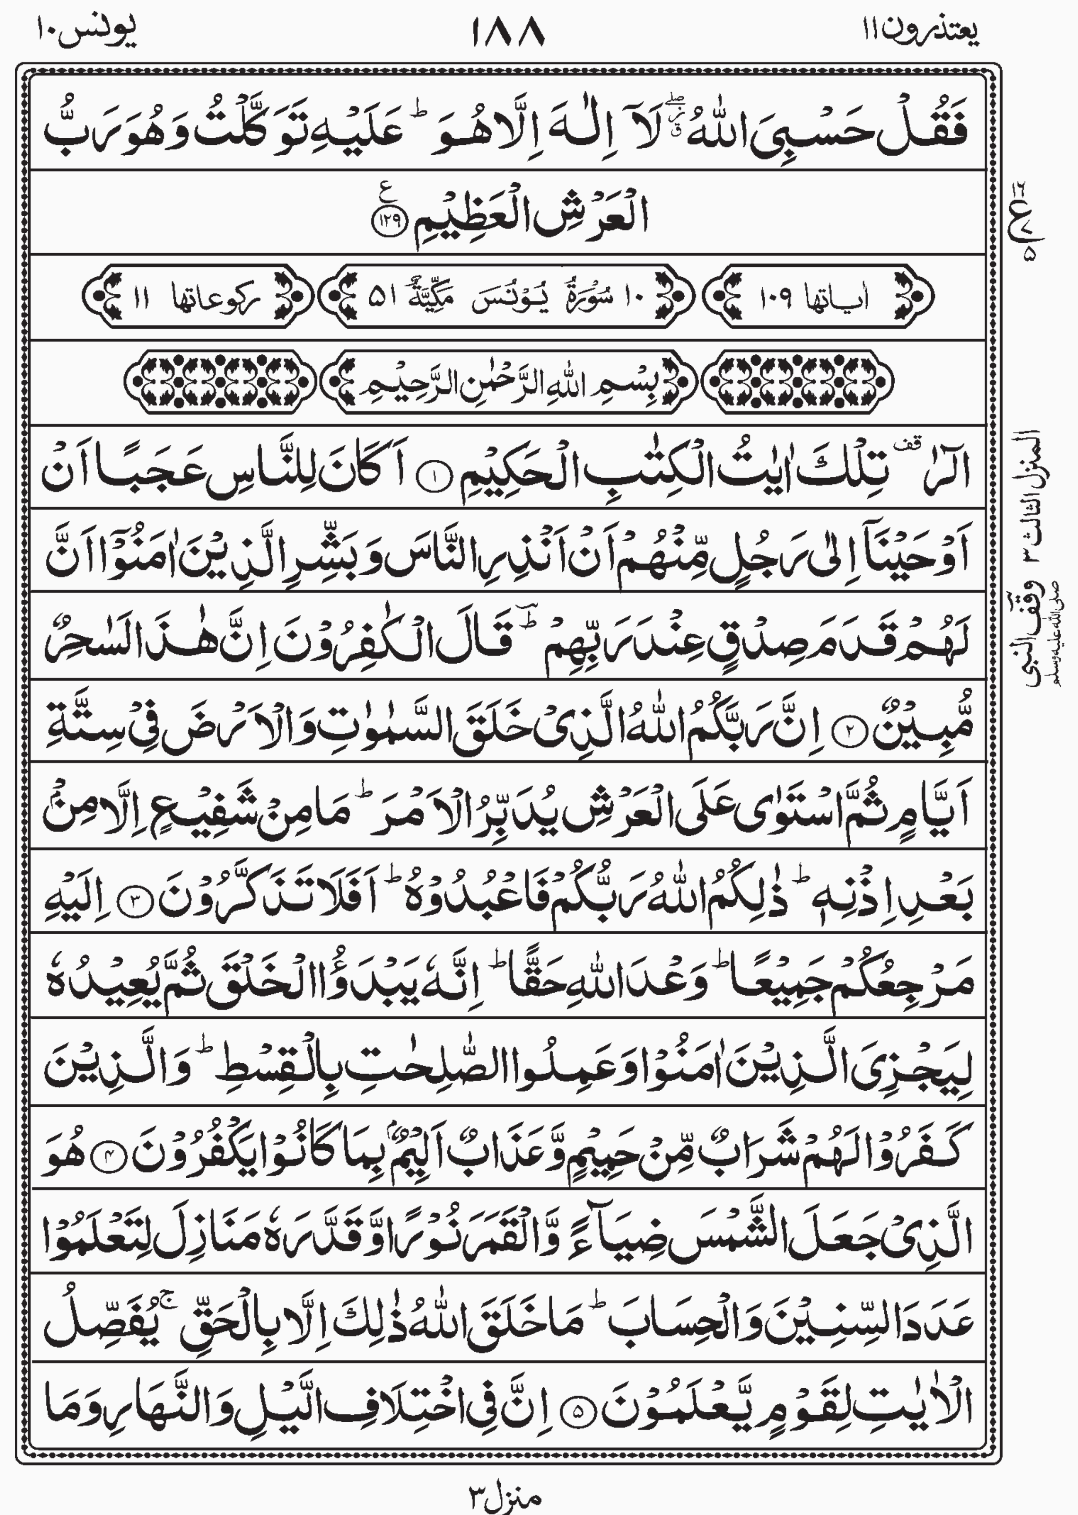 يعتذرون ١١
١٨٨
يونس ١٠
فَقُلْ حَسْبِىَ اللّٰهُ ۖ لَآ اِلٰهَ اِلَّا هُوَ ؕ عَلَيْهِ تَوَكَّلْتُ وَهُوَ رَبُّ
الْعَرْشِ الْعَظِيْمِ ١٢٩ ع
اٰياتها ١٠٩
١٠ سُوْرَةُ يُوْنُسَ مَكِّيَّةٌ ٥١
ركوعاتها ١١
بِسْمِ اللّٰهِ الرَّحْمٰنِ الرَّحِيْمِ
الٓرٰ قف تِلْكَ اٰيٰتُ الْكِتٰبِ الْحَكِيْمِ ١ اَكَانَ لِلنَّاسِ عَجَبًا اَنْ
اَوْحَيْنَآ اِلٰى رَجُلٍ مِّنْهُمْ اَنْ اَنْذِرِ النَّاسَ وَبَشِّرِ الَّذِيْنَ اٰمَنُوْٓا اَنَّ
لَهُمْ قَدَمَ صِدْقٍ عِنْدَ رَبِّهِمْ ؕ قَالَ الْكٰفِرُوْنَ اِنَّ هٰذَا لَسٰحِرٌ
مُّبِيْنٌ ٢ اِنَّ رَبَّكُمُ اللّٰهُ الَّذِىْ خَلَقَ السَّمٰوٰتِ وَالْاَرْضَ فِىْ سِتَّةِ
اَيَّامٍ ثُمَّ اسْتَوٰى عَلَى الْعَرْشِ يُدَبِّرُ الْاَمْرَ ؕ مَا مِنْ شَفِيْعٍ اِلَّا مِنْۢ
بَعْدِ اِذْنِهٖ ؕ ذٰلِكُمُ اللّٰهُ رَبُّكُمْ فَاعْبُدُوْهُ ؕ اَفَلَا تَذَكَّرُوْنَ ٣ اِلَيْهِ
مَرْجِعُكُمْ جَمِيْعًا ؕ وَعْدَ اللّٰهِ حَقًّا ؕ اِنَّهٗ يَبْدَؤُا الْخَلْقَ ثُمَّ يُعِيْدُهٗ
لِيَجْزِىَ الَّذِيْنَ اٰمَنُوْا وَعَمِلُوا الصّٰلِحٰتِ بِالْقِسْطِ ؕ وَالَّذِيْنَ
كَفَرُوْا لَهُمْ شَرَابٌ مِّنْ حَمِيْمٍ وَّعَذَابٌ اَلِيْمٌۢ بِمَا كَانُوْا يَكْفُرُوْنَ ٤ هُوَ
الَّذِىْ جَعَلَ الشَّمْسَ ضِيَآءً وَّالْقَمَرَ نُوْرًا وَّقَدَّرَهٗ مَنَازِلَ لِتَعْلَمُوْا
عَدَدَ السِّنِيْنَ وَالْحِسَابَ ؕ مَا خَلَقَ اللّٰهُ ذٰلِكَ اِلَّا بِالْحَقِّ ۚ يُفَصِّلُ
الْاٰيٰتِ لِقَوْمٍ يَّعْلَمُوْنَ ٥ اِنَّ فِى اخْتِلَافِ الَّيْلِ وَالنَّهَارِ وَمَا
منزل ٣
١٦ ع ٧ ٥
المنزل الثالث ٣
وقف النبى صلى الله عليه وسلم